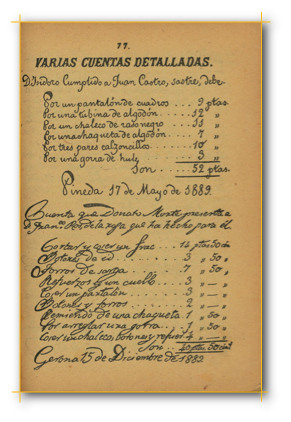 77.
VARIAS CUENTAS DETALLADAS.
D. Isidro Cumplido a Juan Castro, sastre, debe.
Por un pantalón de cuadros .... 9 ptas
Por una tubina de algodón ..... 12 "
Por un chaleco de raso negro ... 11 "
Por una chaqueta de algodón .... 7 "
Por tres pares calzoncillos .... 10 "
Por una gorra de hule ..... 3 "
Son .... 52 ptas.
Pineda 17 de Mayo de 1889.
Cuenta que Donato Morte presenta a
D. Juan de la ropa que ha hecho para él.
Cortar y coser un frac ... 14 ptas 50 cm
de id ..... 3 " 50 "
Forros de sarga ..... 7 " 50 "
Refuerzos y un cuello ... 3 " — "
Coser un pantalón ..... 3 " — "
y forros .... 2 " — "
Remiendo de una chaqueta 1 " 50 "
Por arreglar una gorra . 1 " 50 "
Coser un chaleco, botones y 4 " — "
Son ..
Gerona 25 de Diciembre de 1882